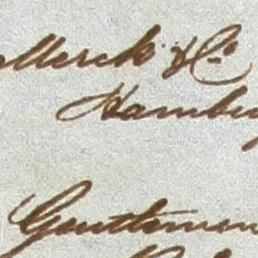 Merck & Co.
Hambu
Gentlemen